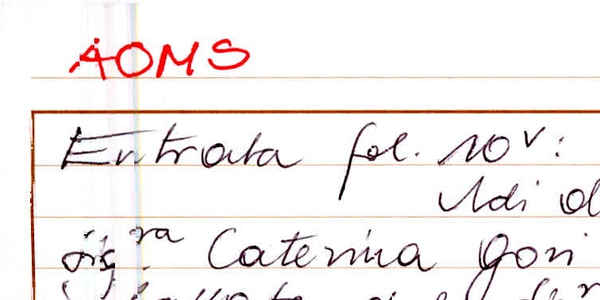 AOMS
Entrata fol. 10v:
Adi d
sig.ra Caterina Gori